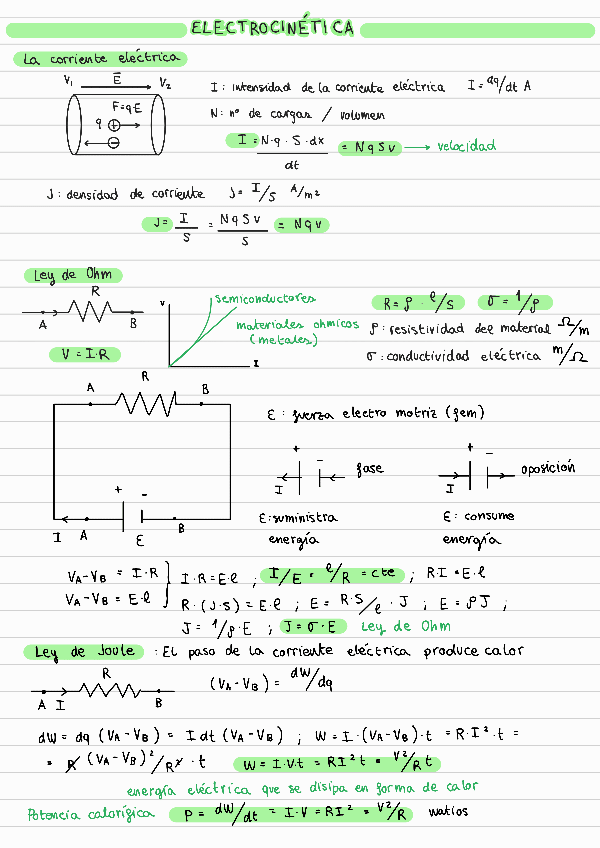 ELECTROCINÉTICA
La corriente eléctrica
V₁ E⃗ V₂
F=q·E
q ⊕
⊖
I: intensidad de la corriente eléctrica I=dq/dt A
N: nº de cargas / volumen
I = N·q·S·dx / dt = NqSv → velocidad
J: densidad de corriente J= I/S A/m²
J= I/S = NqSv/S = Nqv
Ley de Ohm
R
A B
V = I·R
V semiconductores
materiales ohmicos
(metales)
I
R= ρ · l/S σ = 1/ρ
ρ: resistividad del material Ω/m
σ: conductividad eléctrica m/Ω
R
A B
+ -
I A ε B
ε: fuerza electro motriz (fem)
+ - fase
I
ε:suministra
energía
+ - oposición
I
ε: consume
energía
VA-VB = I·R
VA-VB = E·l
I·R=E·l ; I/E = l/R = cte ; R·I=E·l
R·(J·S)=E·l ; E= R·S/l · J ; E=ρJ ;
J= 1/ρ·E ; J=σ·E Ley de Ohm
Ley de Joule : EL paso de la corriente eléctrica produce calor
R
A I B
(VA-VB)= dW/dq
dW= dq (VA-VB) = I dt (VA-VB) ; W= I·(VA-VB)·t = R·I²·t =
= R (VA-VB)²/R² · t W= I·V·t = RI²t = V²/R t
energía eléctrica que se disipa en forma de calor
Potencia calorífica P= dW/dt = I·V = RI² = V²/R watios